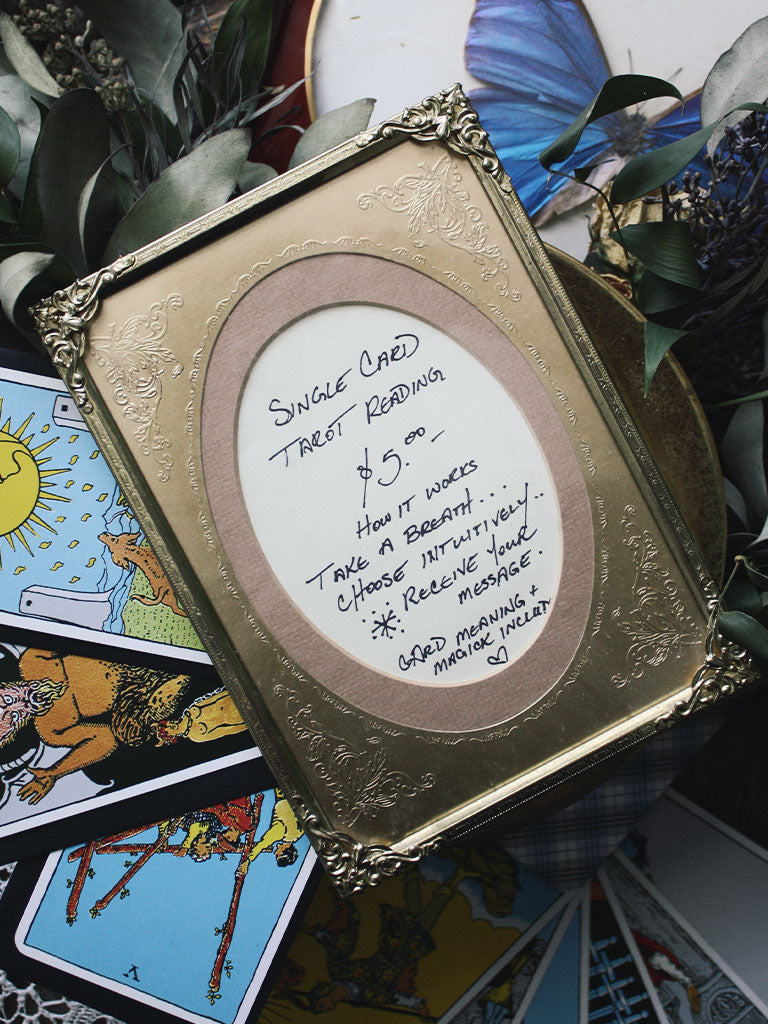 SINGLE CARD
TAROT READING
$5.00
HOW IT WORKS
TAKE A BREATH...
CHOOSE INTUITIVELY..
RECEIVE YOUR
MESSAGE.
CARD MEANING +
MAGICK
V